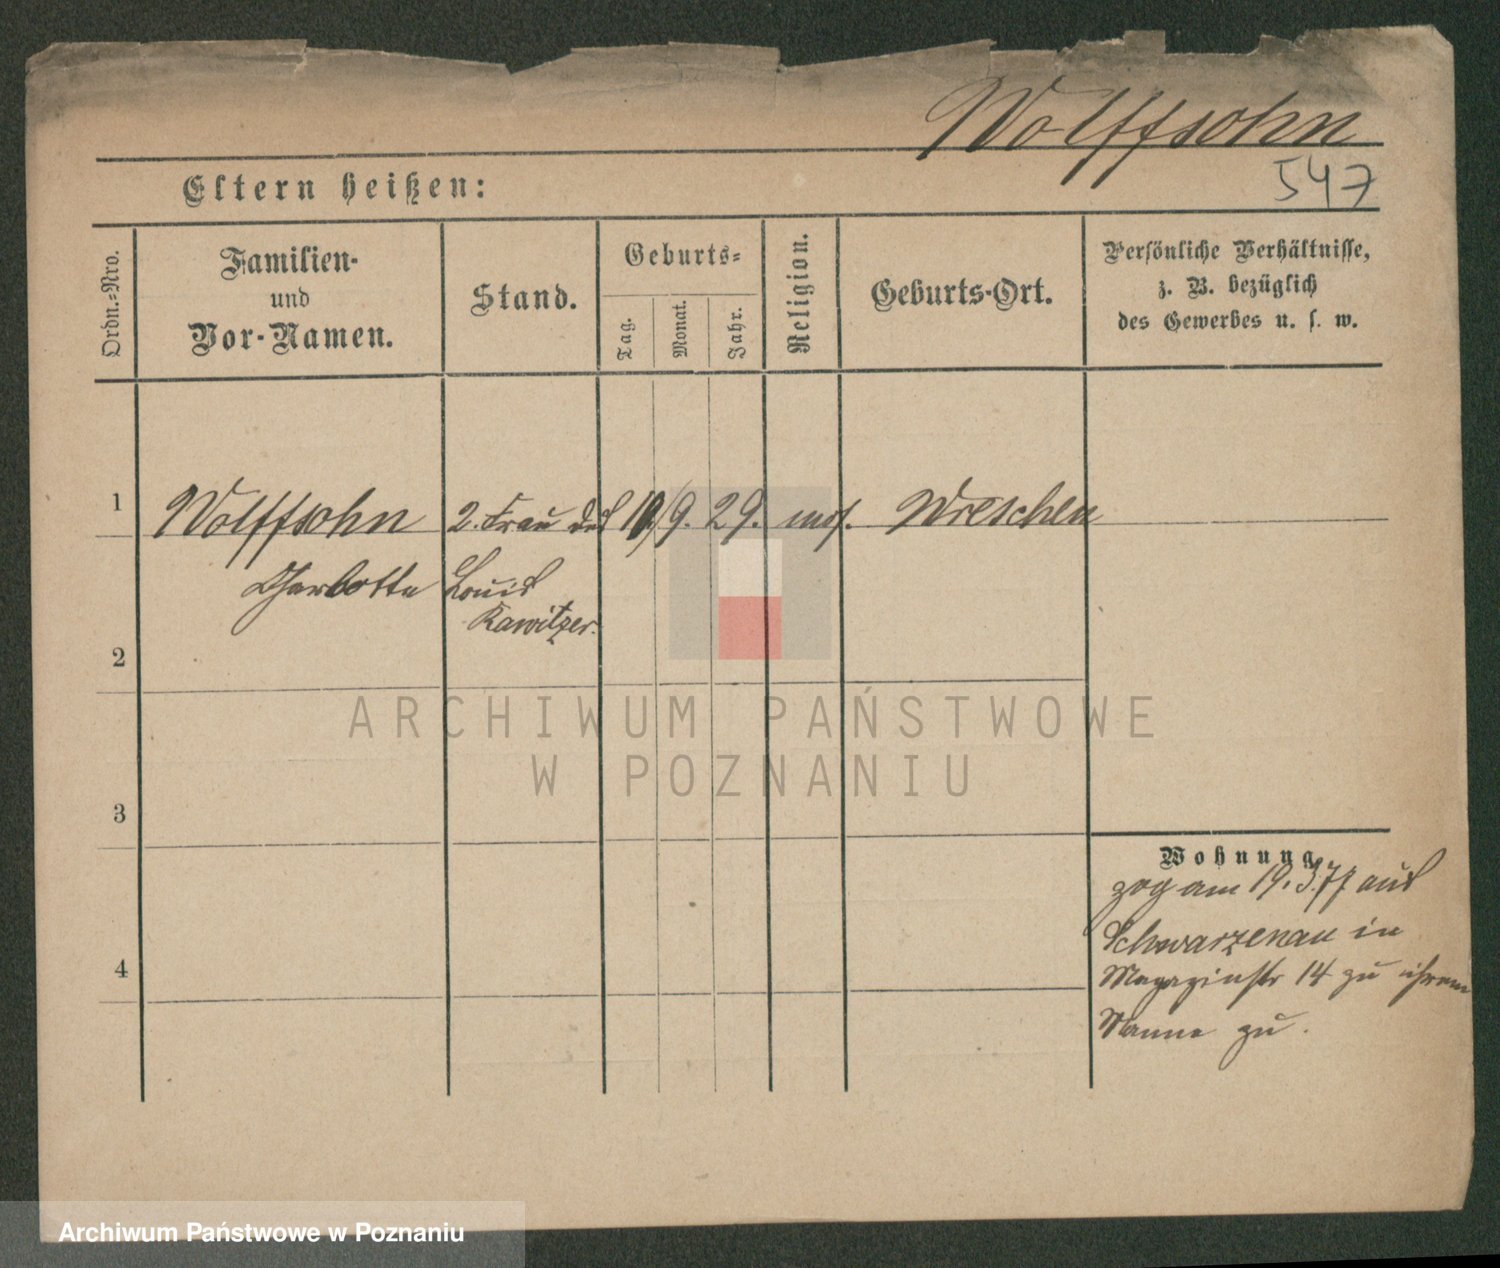 Wolffsohn
547
Eltern heißen:
Ordn.=Nro.
Familien-
und
Vor-Namen.
Stand.
Geburts=
Tag.
Monat.
Jahr.
Religion.
Geburts-Ort.
Persönliche Verhältnisse,
z. B. bezüglich
des Gewerbes u. s. w.
1
Wolffsohn 2. Frau des 9. 29. mos. Wreschen
Charlotte Louis
Rawitzer.
2
3
4
Wohnung.
zog am 19.3.77 aus
Schwarzenau in
Magazinstr 14 zu ihrem
Manne zu.
ARCHIWUM PAŃSTWOWE
W POZNANIU
Archiwum Państwowe w Poznaniu